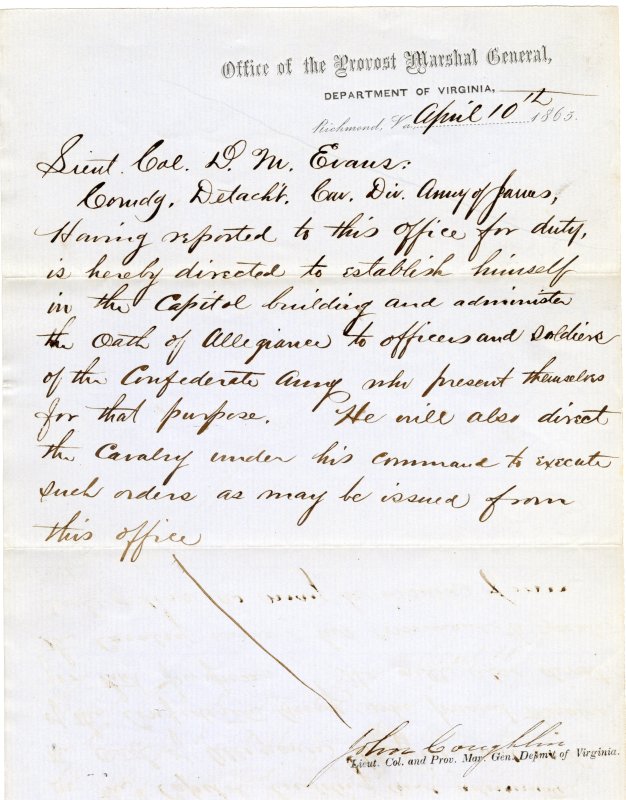 Office of the Provost Marshal General,
DEPARTMENT OF VIRGINIA,
Richmond, Va. April 10th 1865.
Lieut. Col. D. M. Evans:
Comdg. Detach't. Cav. Div. Army of James,
Having reported to this office for duty,
is hereby directed to establish himself
in the Capitol building and administer
the Oath of Allegiance to officers and soldiers
of the Confederate Army who present themselves
for that purpose. He will also direct
the Cavalry under his command to execute
such orders as may be issued from
this office
John Coughlin
Lieut. Col. and Prov. Mar. Gen. Depm't of Virginia.